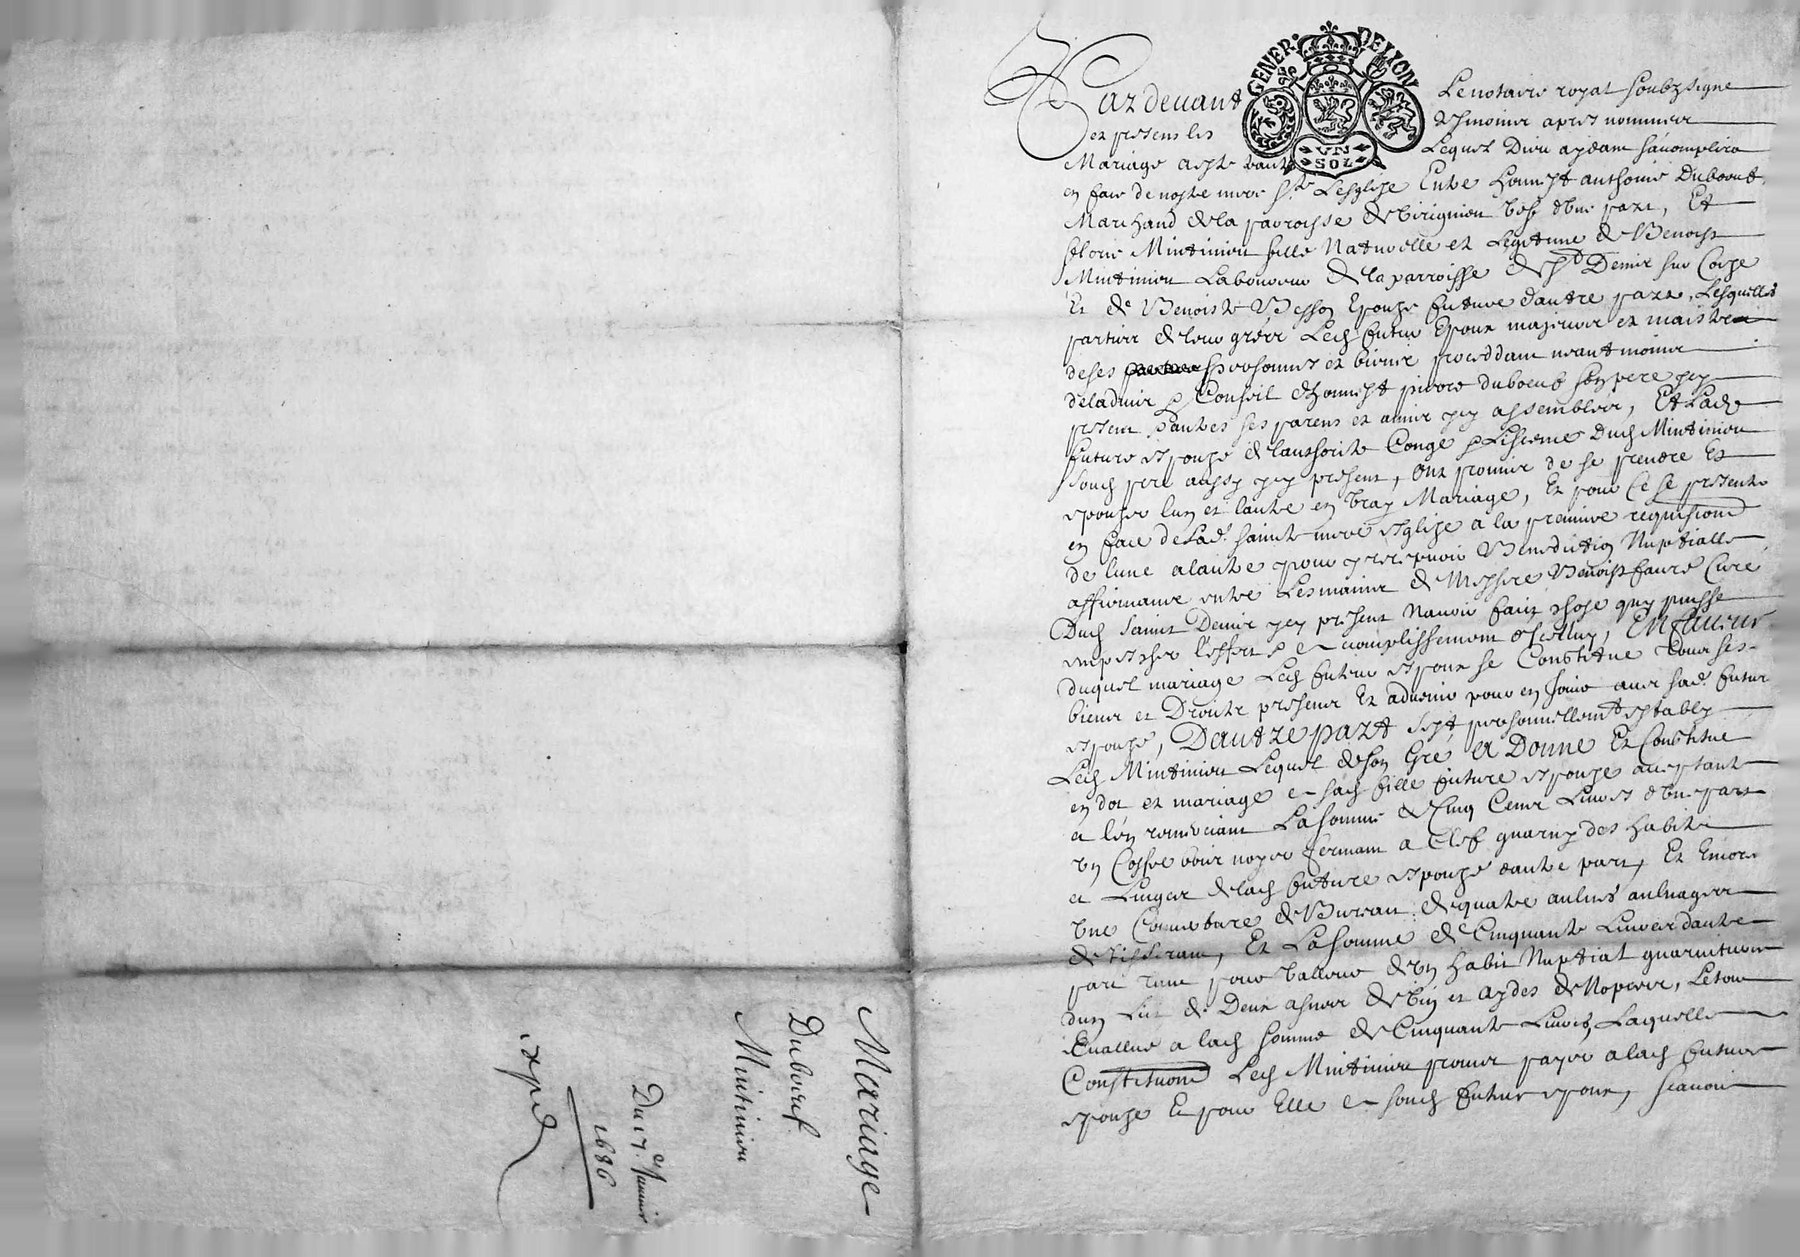 GENER. DE LION
UN
SOL
Pardevant Le notaire royal soubzsigne
et presens les tesmoins apres nommes
Mariage Lequel Dieu aydant s'acomplira
en face de nostre mere Ste Lesglise Entre honnest anthoine Duboeuf
Marchand de la parroisse de d'une part, Et
Mintinieu fille Naturelle et Legitime de Benoist
Mintinieu Laboureur de la parroisse de St Denis sur Coize
Et de Benoiste Besson Epouze future d'autre part, Lesquelles
parties de leur grées Led futur Epoux majeur et maistre
de ses personnes et biens proceddant neantmoins
de l'advis & Conseil d'honnest pierre duboeuf son pere icy
present & autres ses parens et amis icy assemblées, Et Lade
future espouze de l'authorité Congé & Lissence Dud Mintinieu
soud pere aussy icy present, Ont promis de se prendre Et
espouzer l'un et l'autre en vray Mariage, Et pour Ce se presenter
en face de Lad. sainte mere esglize a la premiere requisition
de l'une a l'autre pour y recepvoir Benediction Nuptialle
affirmants entre Les mains de Messire Benoist faure Curé
Dud Saint Denis icy present N'avoir faict chose quy puisse
empescher l'effect & acomplissement d'Icelluy, En faveur
duquel mariage Led futur espoux se Constitue tous ses
biens et Droits presens Et advenir pour en Jouir avec sad. future
espouze, D'autre part s'est personnellemt establÿ
Led Mintinieu Lequel de son Gré a Donné Et Constitué
en dot et mariage a sad fille future espouze aceptante
et l'en remerciant La somme de Cinq Cents Livres d'une part
un Coffre bois noyer fermant a Clef guarny des habits
et Linges de lad future espouze d'autre part, Et Encore
une Couverture de Bureau de quatre aulnes aulnages
de tisserant, Et La somme de Cinquante Livres d'autre
part tant pour valleur de un habit Nuptial guarniture
dun Lit de Deux asnées de vin et aydes de Nopces, Le tout
Evallué a lad somme de Cinquante Livres, Laquelle
Constitution Led Mintinieu promet payer a lad future
espouze Et pour Elle a soud futur espoux, scavoir
Mariage
Duboeuf
Mintinieu
Du 17e Janvier
1686
exped